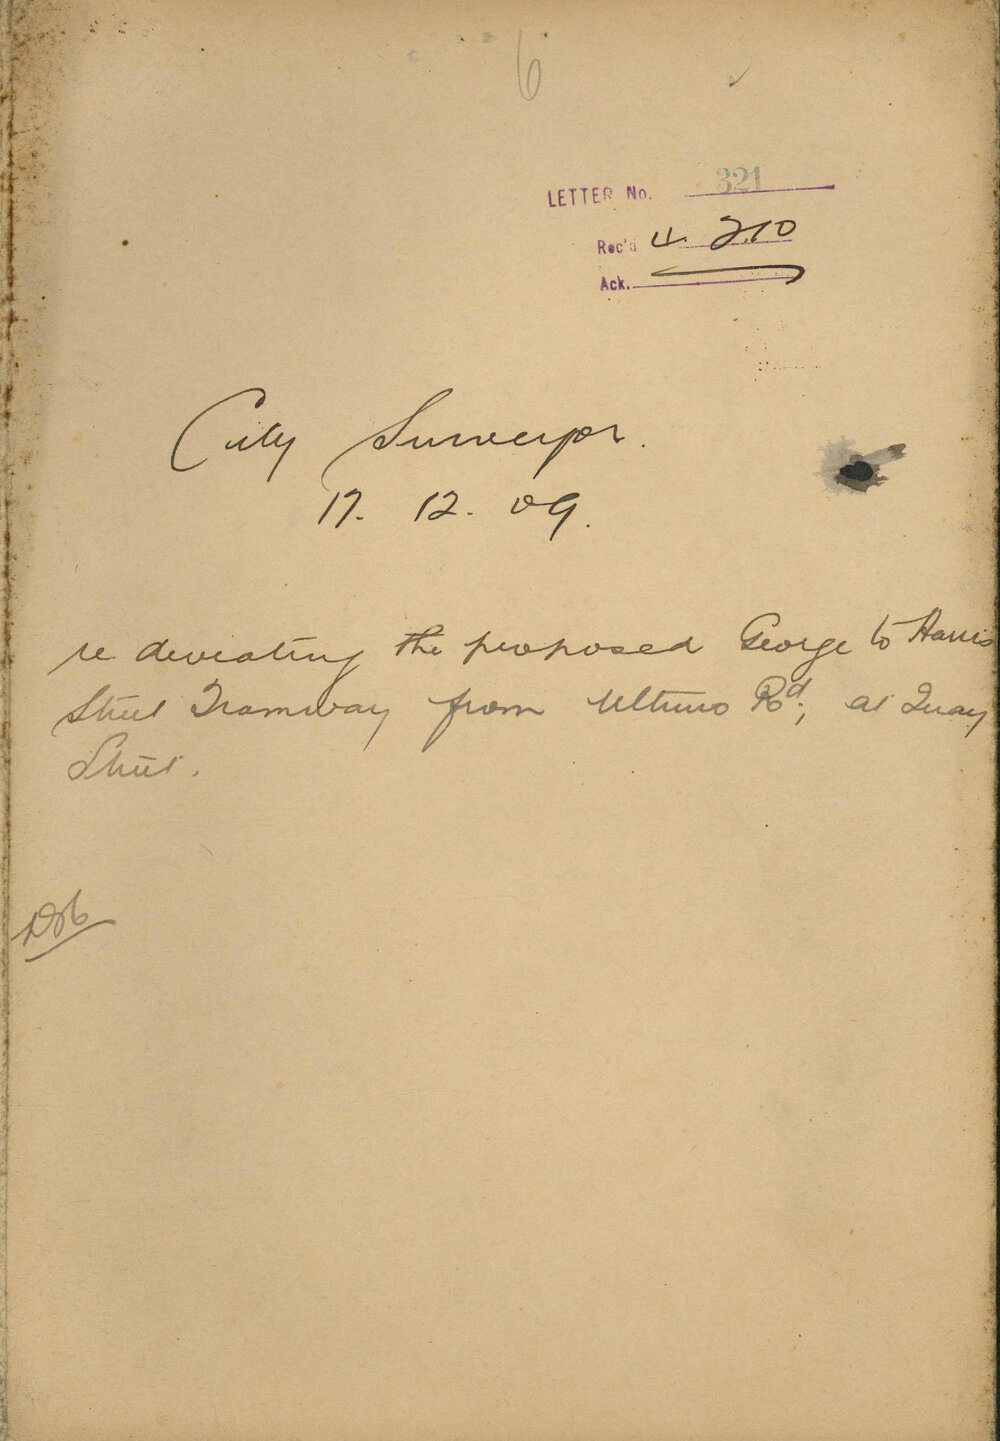 6
LETTER No. 321
Rec'd 4. 2.10
Ack.
City Surveyor.
17. 12. 09.
re deviating the proposed George to Harris
Street Tramway from Ultimo Rd, at Quay
Street.